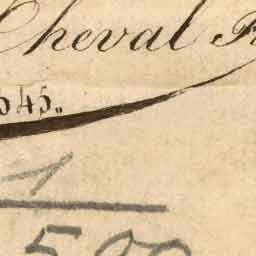 Cheval
545.
1
500